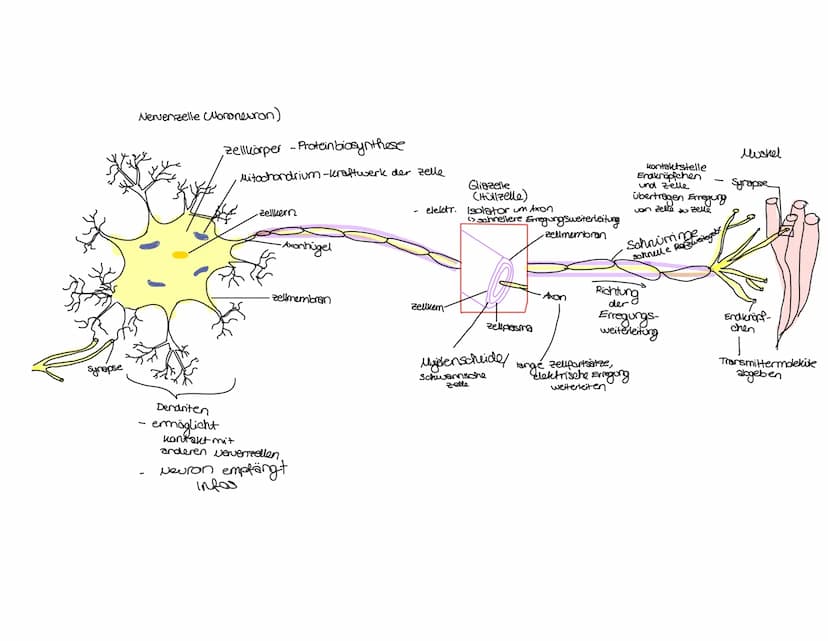 Nervenzelle (Motoneuron)
Zellkörper - Proteinbiosynthese
Mitochondrium - Kraftwerk der Zelle
Zellkern
Axonhügel
Zellmembran
Synapse
Dendriten
- ermöglicht
Kontakt mit
anderen Nervenzellen
- Neuron empfängt
Infos
Gliazelle
(Hüllzelle)
- elektr. Isolator um Axon
↳ schnellere Erregungsweiterleitung
Zellmembran
Zellkern
Axon
Zellplasma
Myelinscheide/
Schwannsche
Zelle
lange Zellfortsätze,
elektrische Erregung
weiterleiten
Schnürringe
schnelle
Richtung
der
Erregungs-
weiterleitung
Kontaktstelle
Endknöpfchen
und Zelle
übertragen Erregung
von Zelle zu Zelle
Synapse
Muskel
Endknöpf-
chen
Transmittermoleküle
abgeben